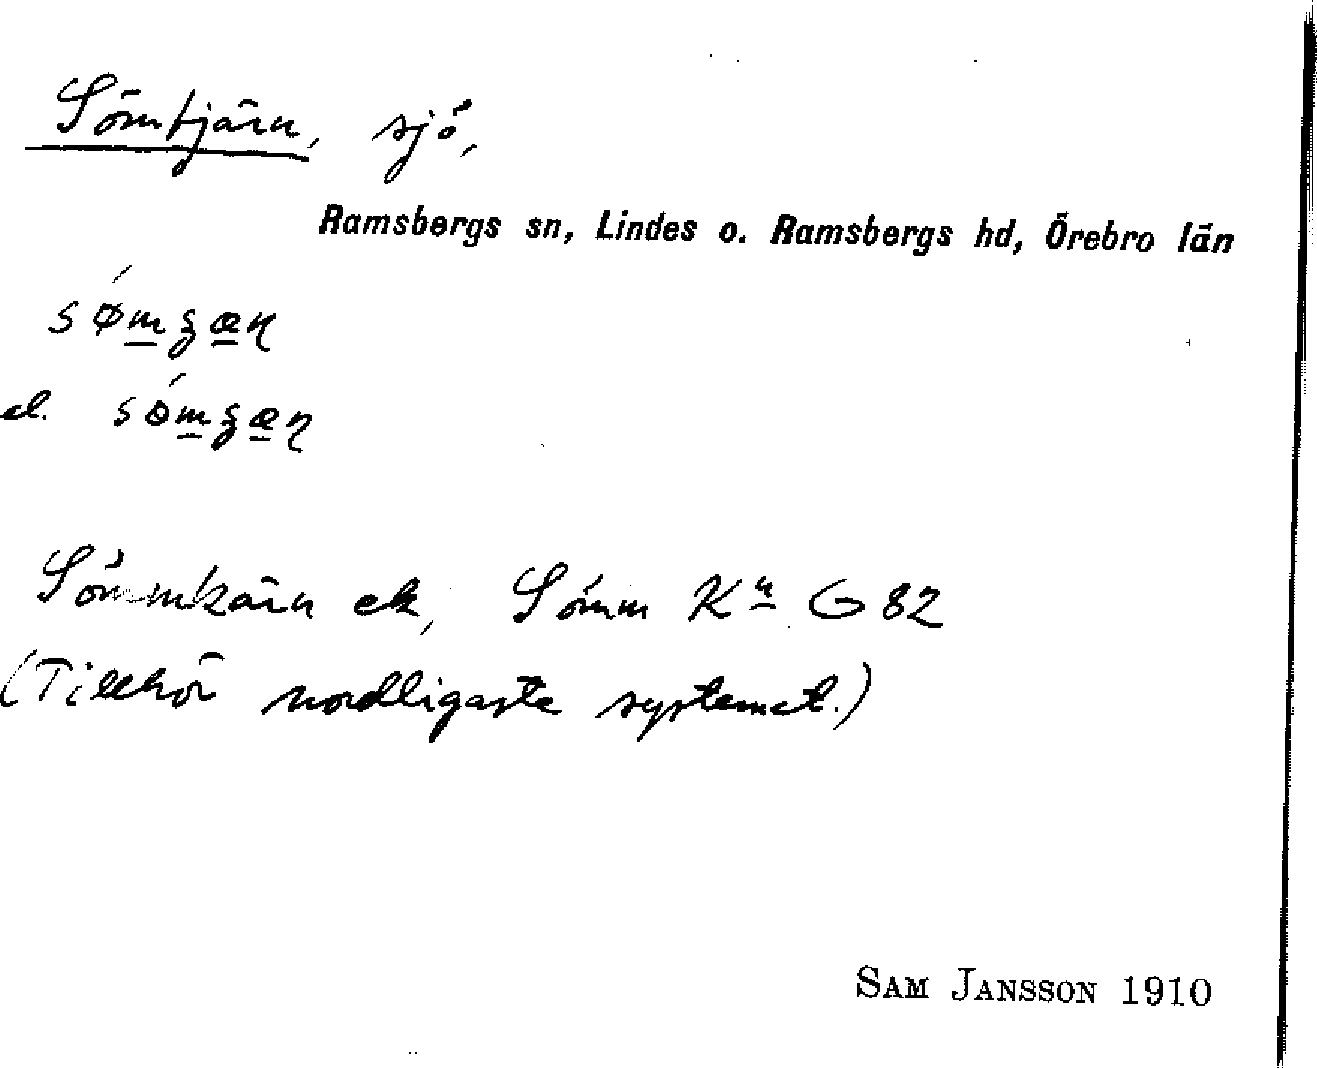 Sömtjärn, sjö,
Ramsbergs sn, Lindes o. Ramsbergs hd, Örebro län
el.
Sömmkärn ek, Sömm Kn G 82
(Tillhör nordligaste systemet.)
SAM JANSSON 1910